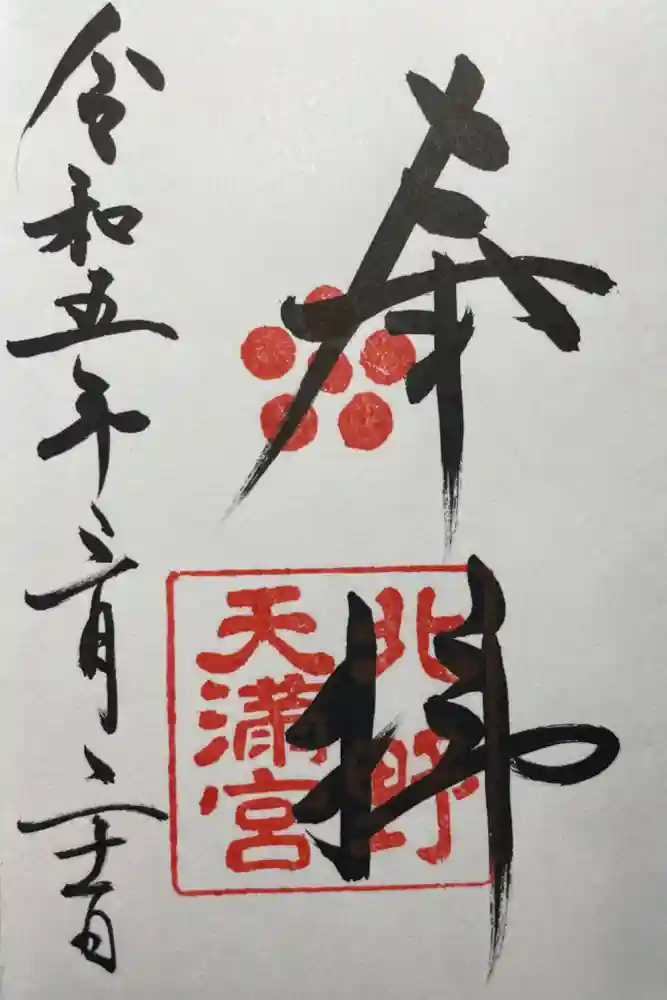 奉拝
北野
天満宮
令和五年三月二十一日